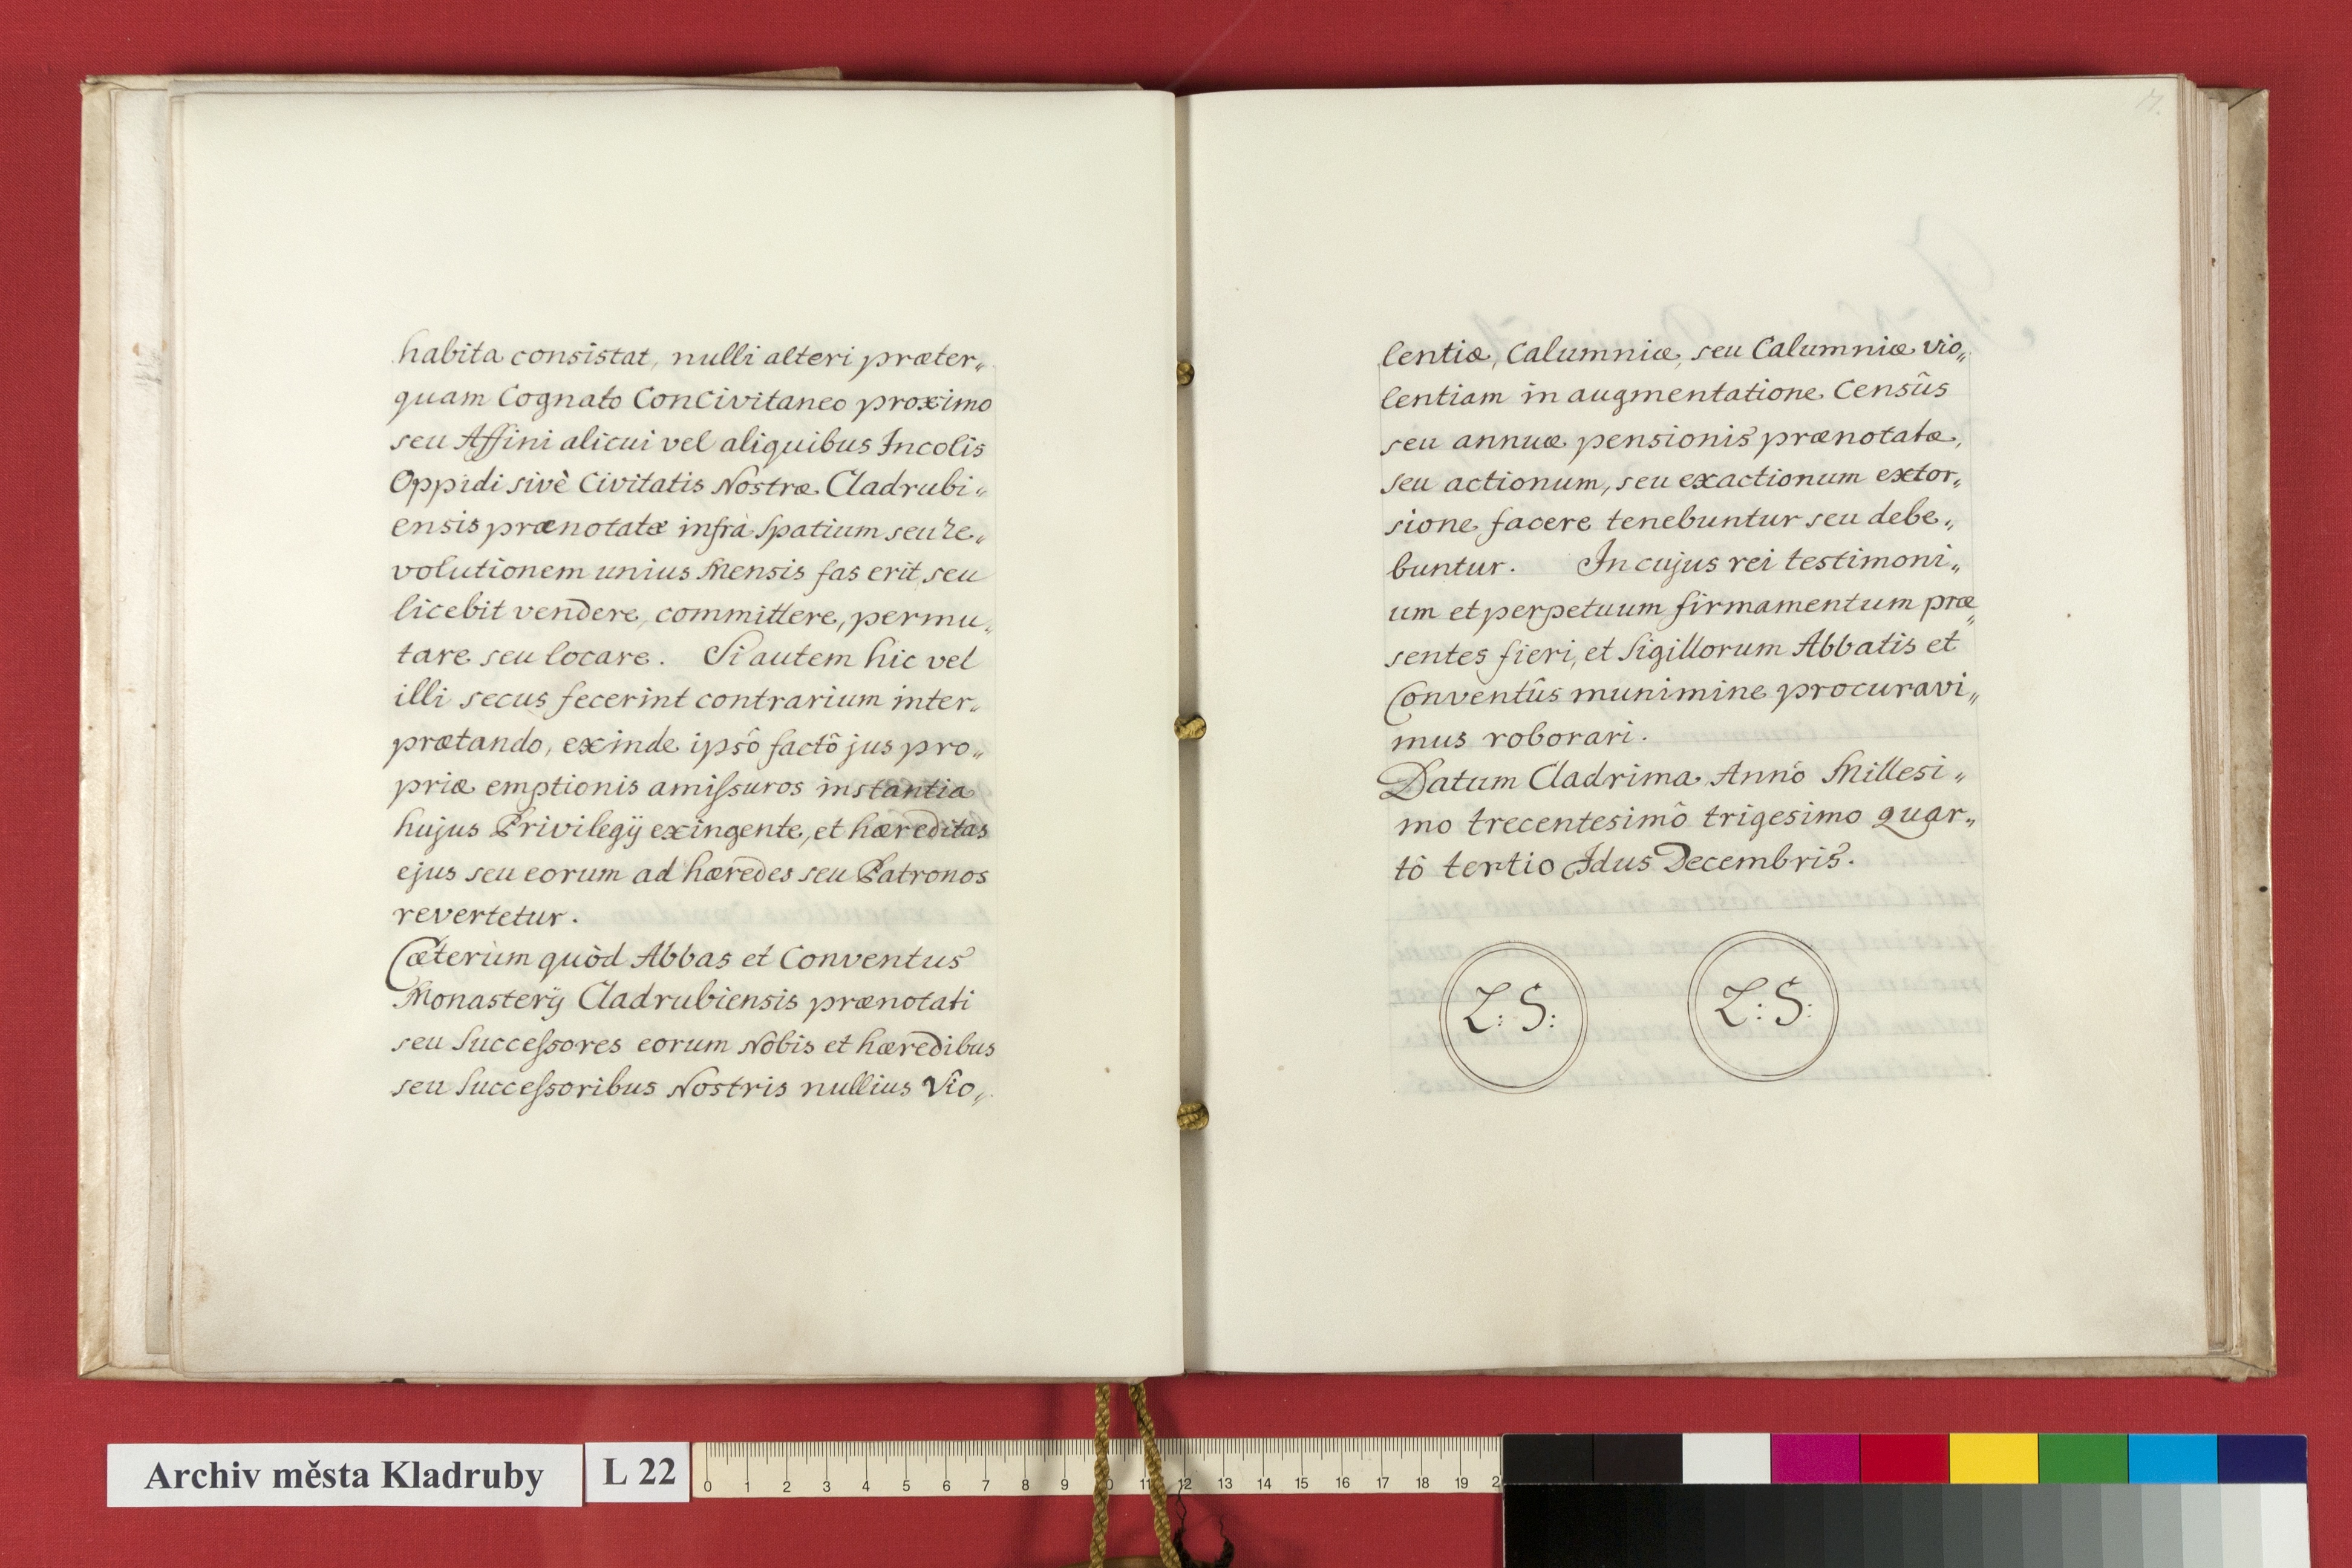 habita consistat, nulli alteri præter„
quam Cognato Concivitaneo proximo
seu Affini alicui vel aliquibus Incolis
Oppidi sivè Civitatis Nostræ Cladrubi„
ensis prænotatæ infrà Spatium seu re„
volutionem unius Mensis fas erit, seu
licebit vendere, committere, permu„
tare seu locare. Si autem hic vel
illi secus fecerint contrarium inter„
prætando, exinde ipsô factô jus pro„
priæ emptionis amiſsuros instantia
hujus Privilegÿ exingente, et hæreditas
ejus seu eorum ad hæredes seu Patronos
revertetur.
Cæterùm quòd Abbas et Conventus
Monasterÿ Cladrubiensis prænotati
seu Succeſsores eorum Nobis et hæredibus
seu Succeſsoribus Nostris nullius Vio„
17.
lentiæ, Calumniæ, seu Calumniæ vio„
lentiam in augmentatione Censûs
seu annuæ pensionis prænotatæ,
seu actionum, seu exactionum extor„
sione facere tenebuntur seu debe„
buntur. In cujus rei testimoni„
um et perpetuum firmamentum præ„
sentes fieri, et Sigillorum Abbatis et
Conventûs munimine procuravi„
mus roborari.
Datum Cladrima Annô Millesi„
mo trecentesimô trigesimo quar„
tô tertio Idus Decembris.
L: S: L: S:
Archiv města Kladruby L 22
0 1 2 3 4 5 6 7 8 9 0 11 12 13 14 15 16 17 18 19 2